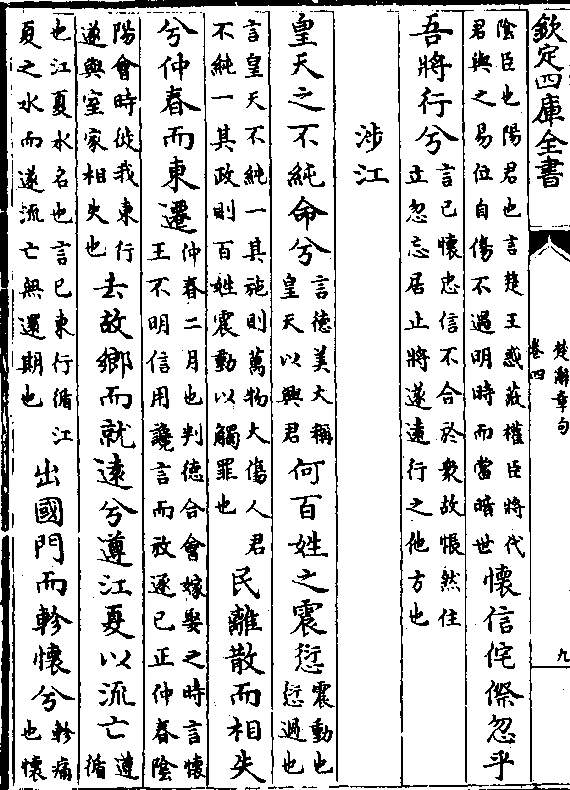 欽定四庫全書
楚辭章句
卷四
九
陰臣也陽君也言楚王惑蔽權臣將代
君與之易位自傷不遇明時而當暗世
懷信侘傺忽乎
吾將行兮
言己懷忠信不合於衆故悵然住
立忽忘居止將遂遠行之他方也
涉江
皇天之不純命兮
言德美大稱
皇天以興君
何百姓之震愆
震動也
愆過也
言皇天不純一其施則萬物大傷人君
不純一其政則百姓震動以觸罪也
民離散而相失
兮仲春而東遷
仲春二月也判德合會嫁娶之時言懷
王不明信用讒言而放逐己正仲春陰
陽會時徙我東行
遂與室家相失也
去故鄉而就遠兮遵江夏以流亡
遵
循
也江夏水名也言己東行循江
夏之水而遂流亡無還期也
出國門而軫懷兮
軫痛
也懷